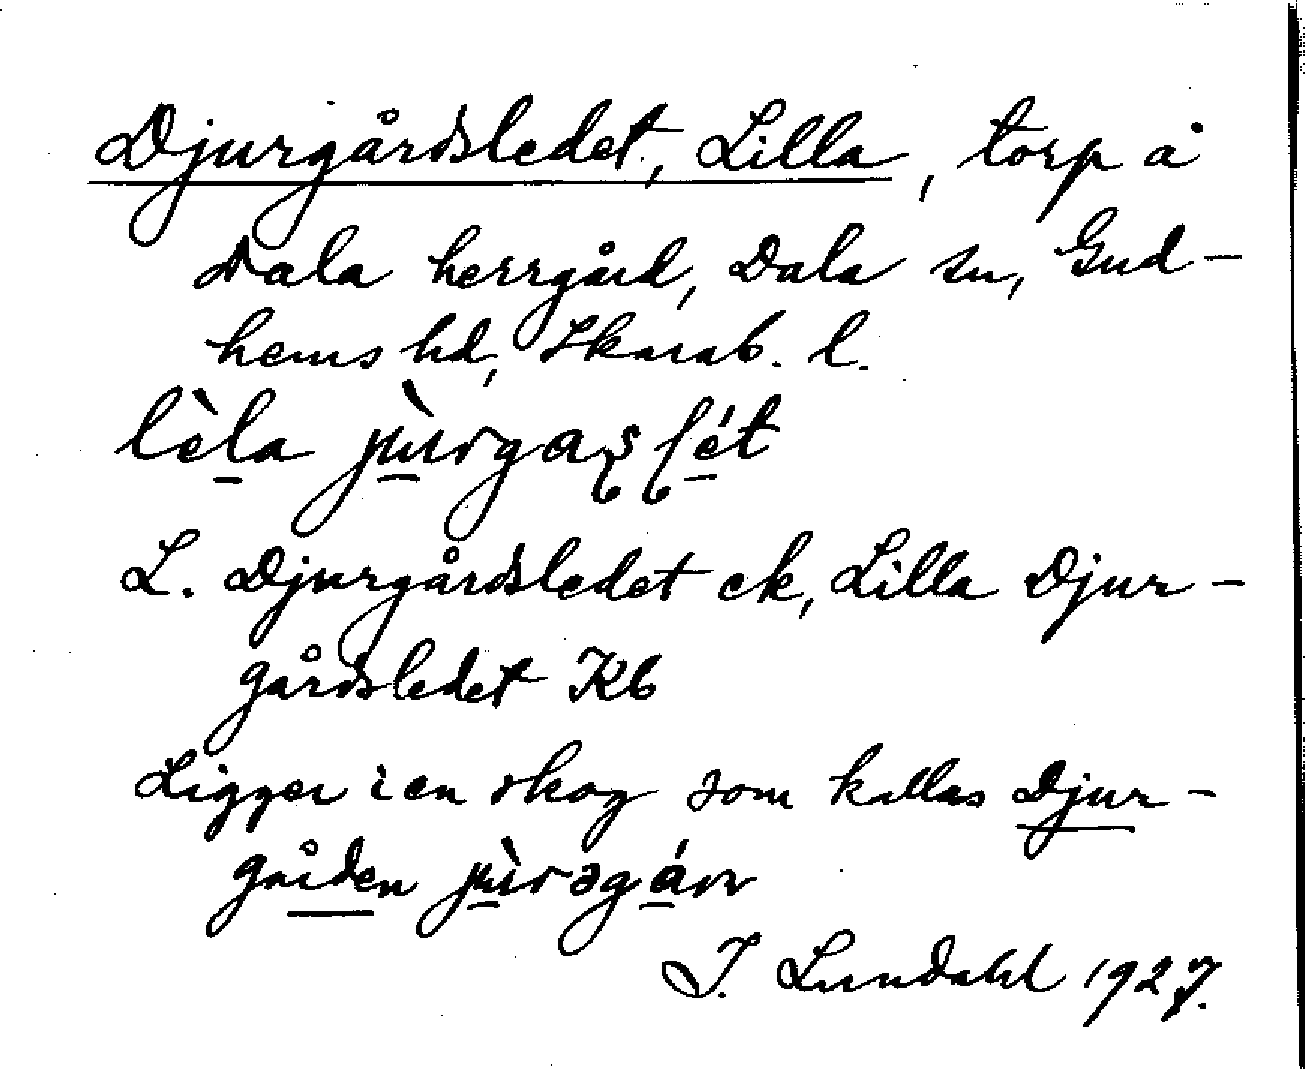 Djurgårdsledet, Lilla, torp å
Dala herrgård, Dala sn, Gud-
hems hd, Skarab. l.
lèla jùrgas lét
L. Djurgårdsledet ek, Lilla Djur-
gårdsledet Kb
Ligger i en skog som kallas Djur-
gården jùrəgán
I. Lundahl 1927.